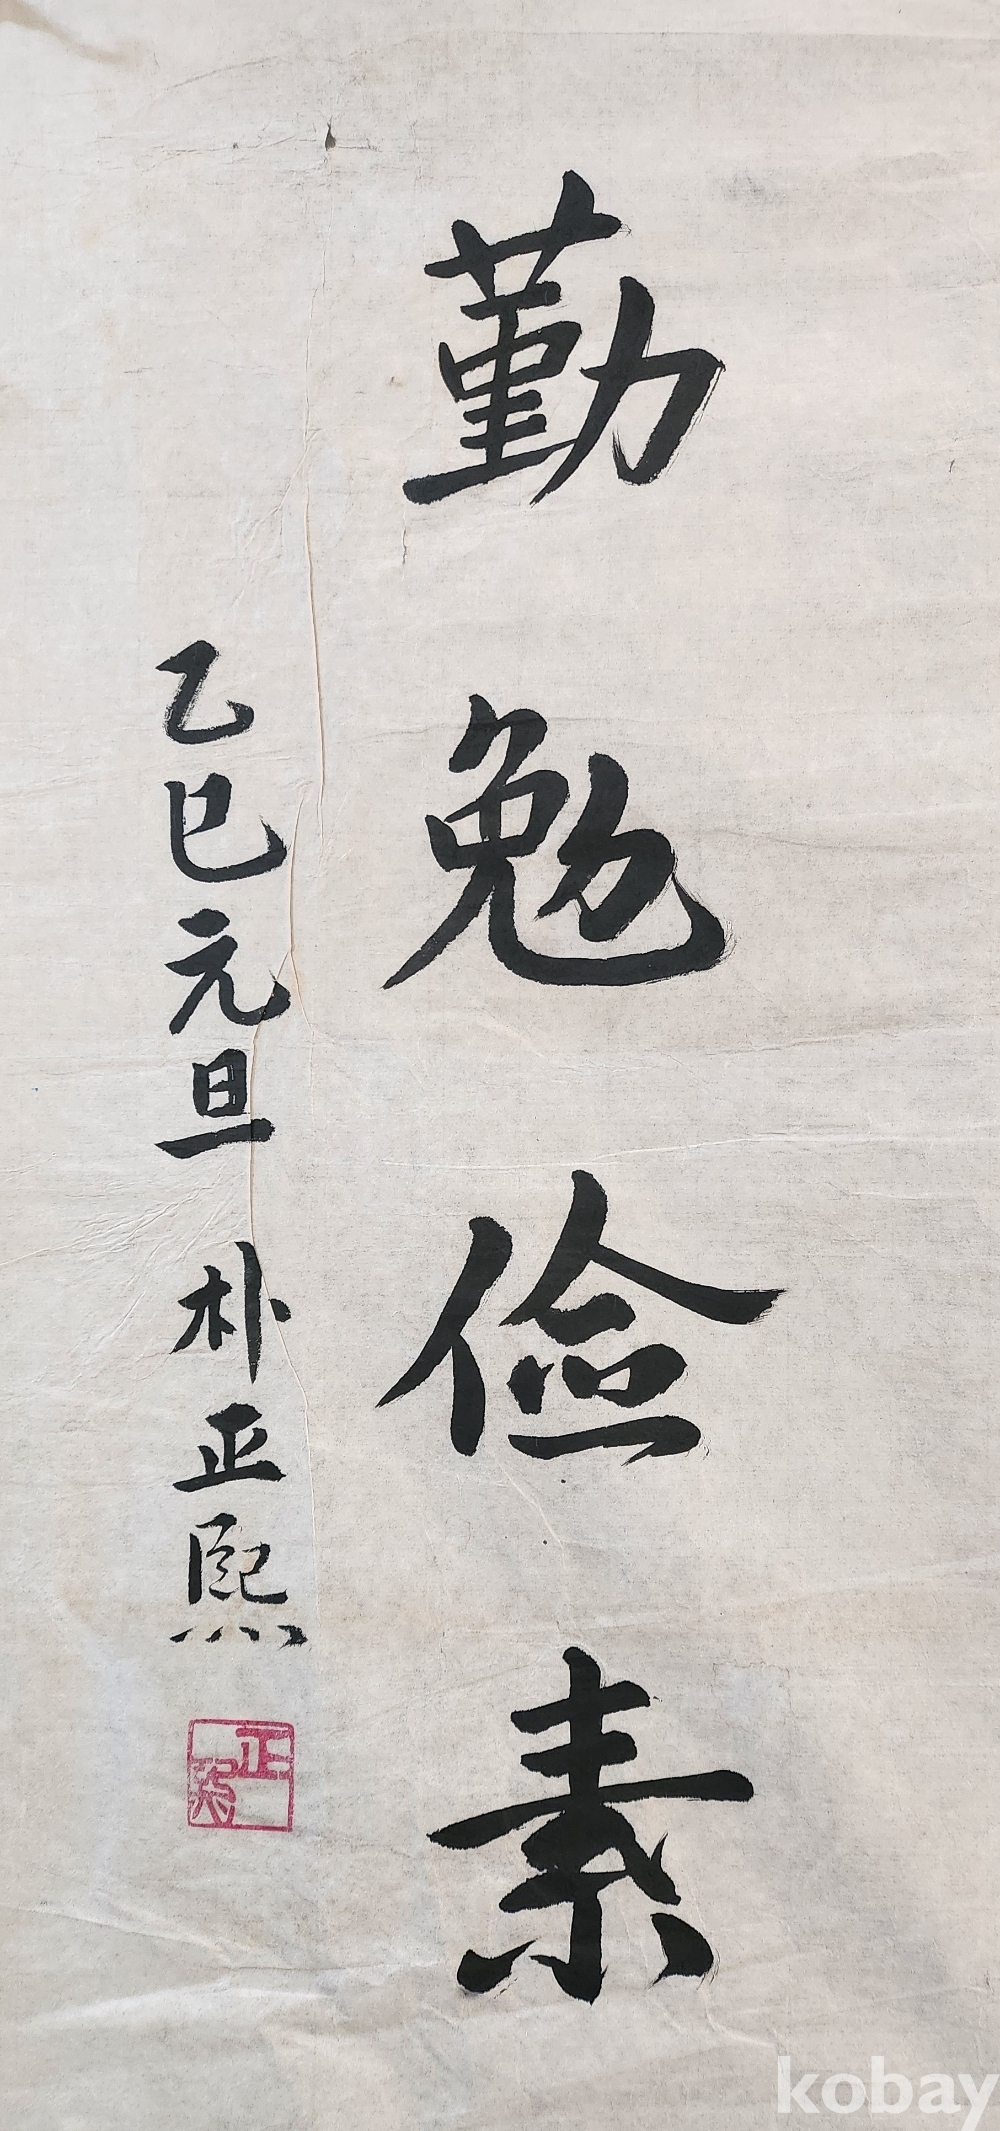 勤勉儉素
乙巳元旦 朴正熙
正熙
kobay